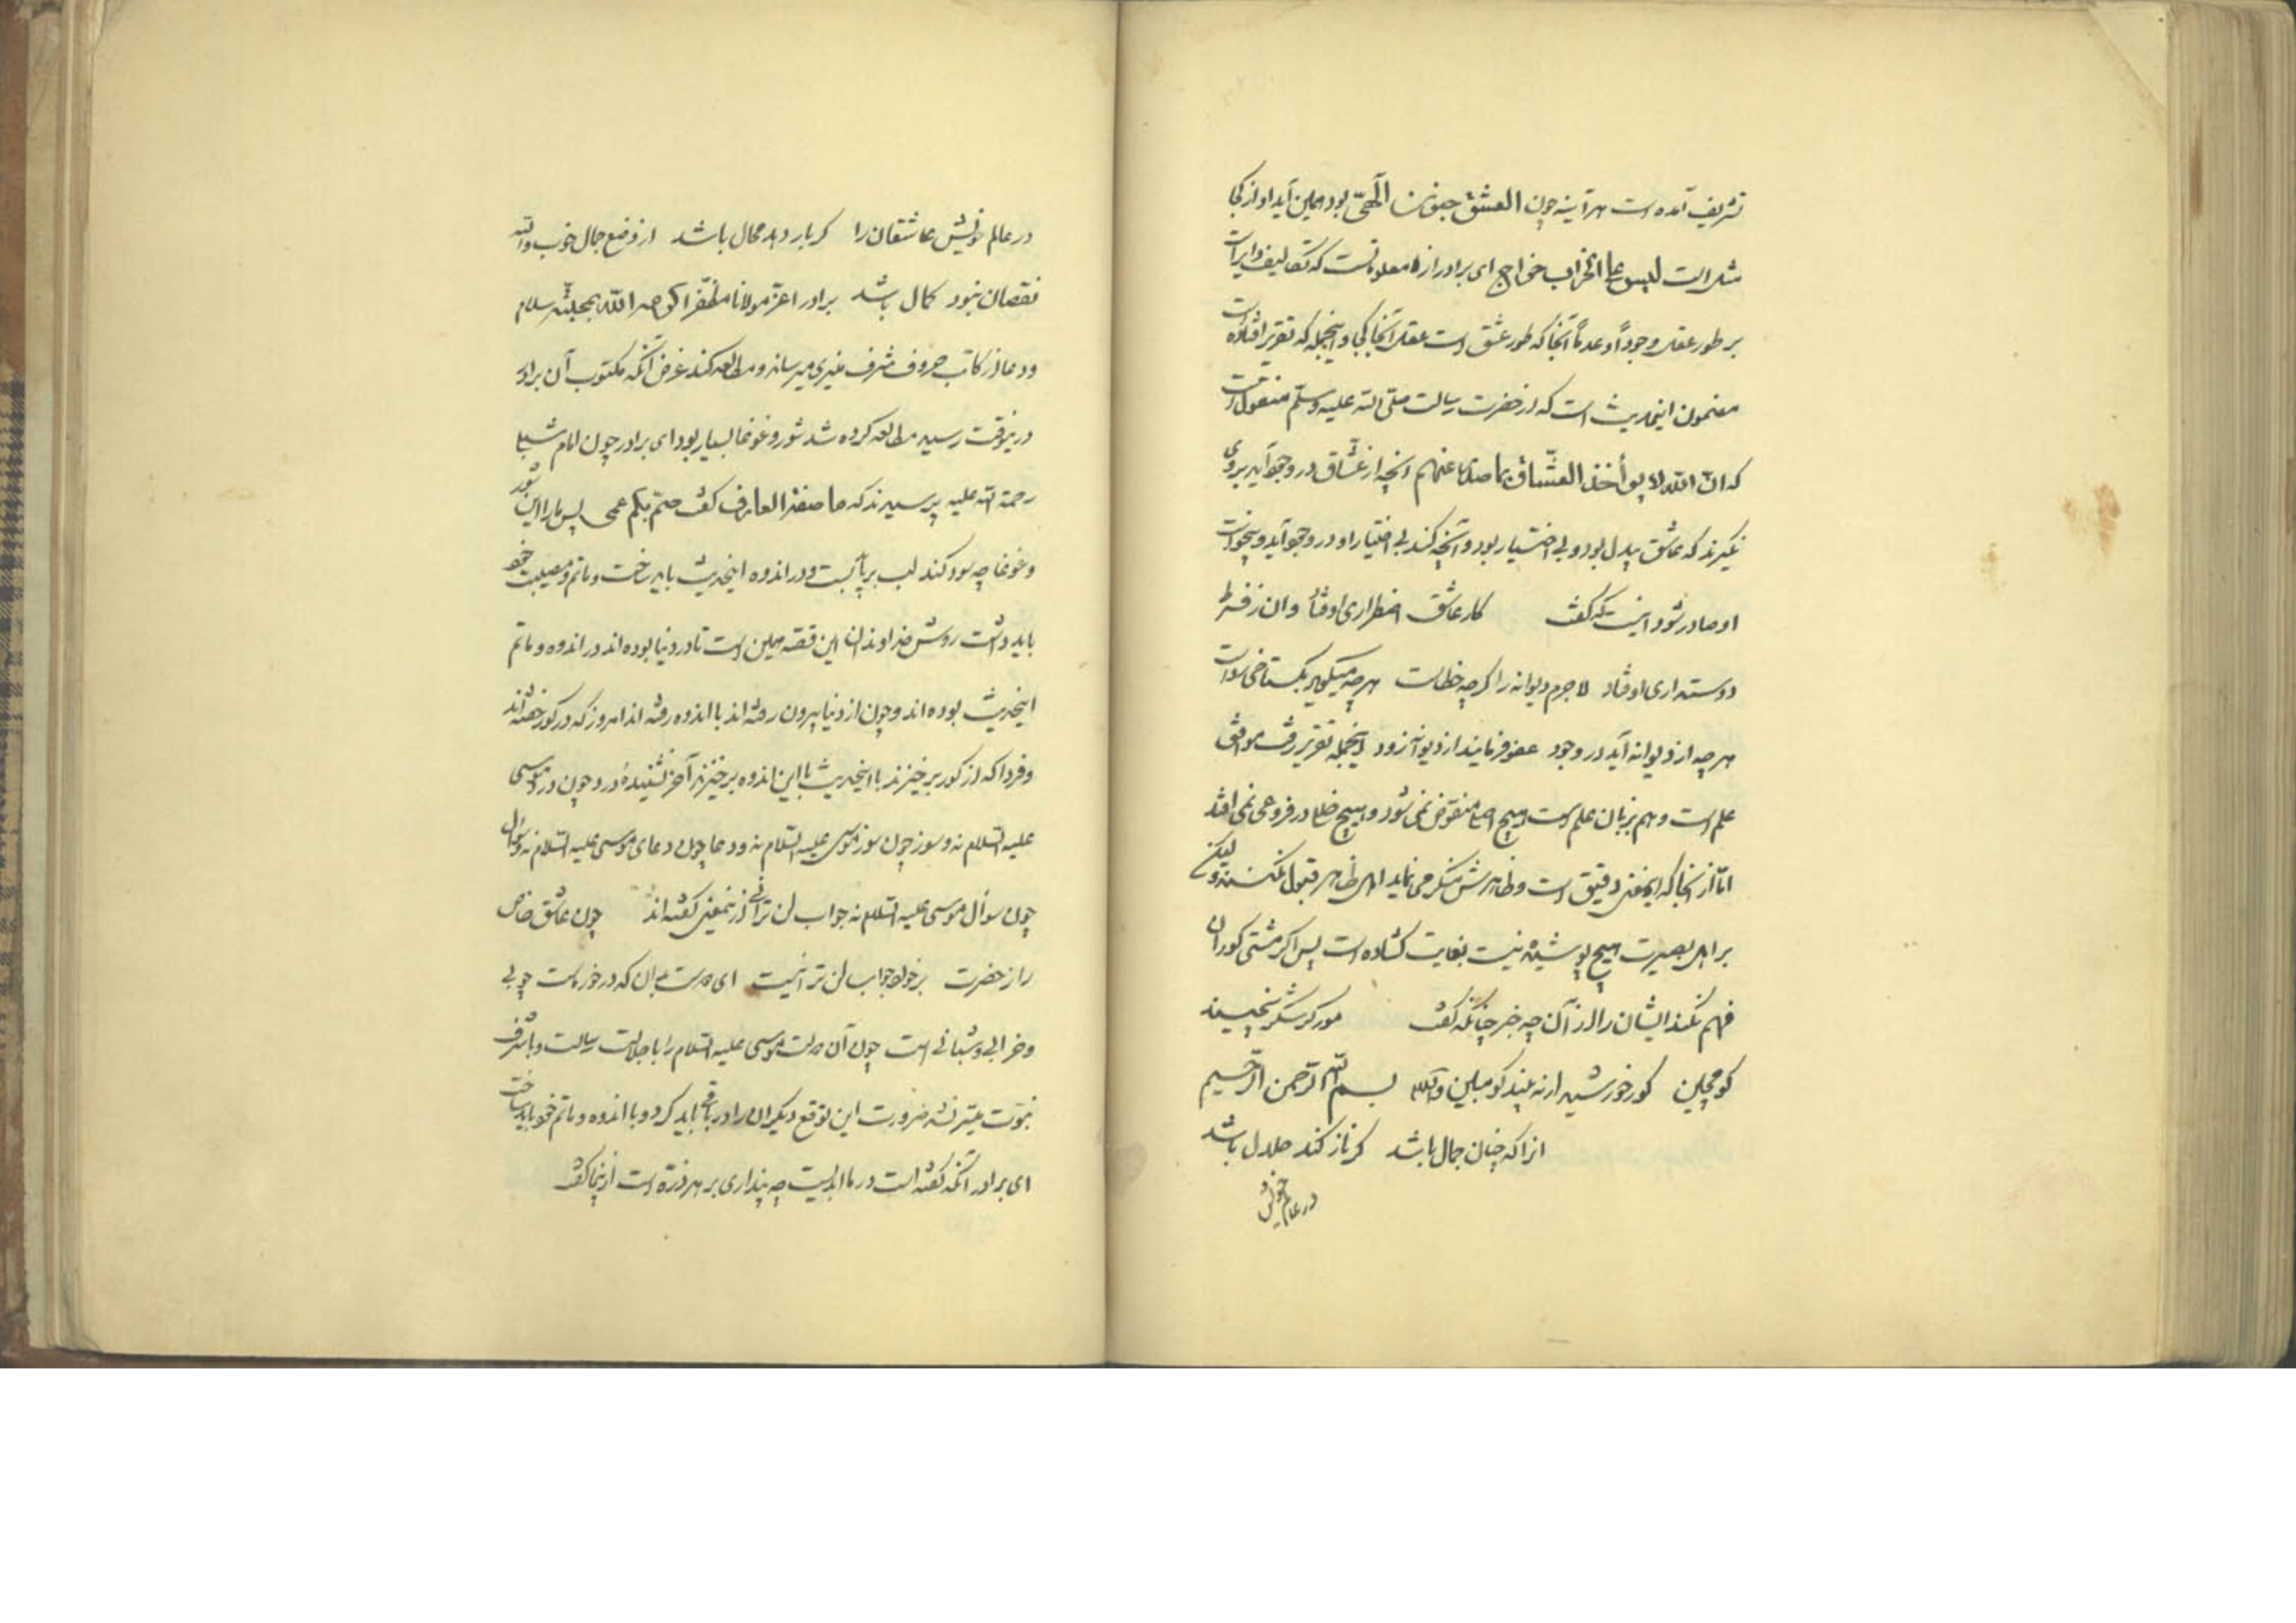 تشریف آمده است هر آینه چون العشق جنون الٰهیّ بود همین آید او از کجا
مثل است لیس علی الخراب خراج ای برادر از معلومات است که تکالیف دایر است
بر طور عقل وجوداً و عدماً آنجا که طور عشق است عقل آنجا کجا و اینجمله که تقریر افتاده است
مضمون اینحدیث است که از حضرت رسالت صلّی الله علیه وسلّم منقول است
که انّ الله لا یوأخذ العشّاق بما صدر عنهم انچه از عشّاق در وجود آید بر وی
نگیرند که عاشق بیدل بود و بی اختیار بود و آنچه کند بی اختیار او در وجود آید و بیخواست
او صادر شود اینست که گفت کار عاشق اضطراری اوفتاد وان ز فرط
دوستداری اوفتاد لاجرم دیوانه را گرچه خطاست هرچه میگوید بگستاخی رواست
هرچه از دیوانه آید در وجود عفو فرمایند از دیوانه زود اینجمله تقریر رفت موافق
علم است و هم بزبان علم است هیچ اصلی منقوض نمی شود و هیچ خللی در فروعی نمی افتد
امّا از آنجا که اینمعنی دقیق است و ظاهرش منکر می نماید اهل ظاهر قبول نکنند ولیکن
بر اهل بصیرت هیچ پوشیده نیست بغایت گشاده است پس اگر مشتی کوران
فهم نکنند ایشان را از آن چه خبر چنانکه گفت مور گر شکر نچیند
گو مچین کور خورشید ار نه بیند گو مبین والسلام بسم الله الرّحمن الرّحیم
انرا که چنان جمال باشد گر ناز کند حلال باشد
در عالم خویش
در عالم خویش عاشقان را گر بار دهد محال باشد از وضع جمال خوب والله
نقصان نبود کمال باشد برادر اعزّ مولانا مظفّر اکرمه الله بمحبّته سلام
و دعا از کاتب حروف شرف منیری میرساند و مطالعه کند غرض آنکه مکتوب آن برادر
درینوقت رسید مطالعه کرده شد شور و غوغا بسیار بود ای برادر چون امام شبلی
رحمة الله علیه پرسیدند که ما صفة العارف گفت صمّ بکم عمی پس ما را این شور
و غوغا چه سود کند لب برپا بست و در اندوه اینحدیث باید سخت و ماتم و مصیبت خود
باید داشت روش خداوندان این قصّه همین است تا در دنیا بوده اند در اندوه و ماتم
اینحدیث بوده اند و چون از دنیا بیرون رفته اند با اندوه رفته اند امروز که در گور خفته اند
و فردا که از گور برخیزند با اینحدیث با این اندوه برخیزند آخر نشنیدهٔ درد چون درد موسی
علیه السّلام نه و سوز چون سوز موسی علیه السّلام نه و دعا چون دعای موسی علیه السّلام نه و سوال
چون سوال موسی علیه السّلام نه جواب لن ترانی ازینمعنی گفته اند چون عاشق خاص
را ز حضرت برخواند جواب لن ترانیست ای دست بدان که درخور ماست چوبی
و خرابی و شبانی است چون آن دولت موسی علیه السّلام را با جلالت رسالت و با شرف
نبوّت میسّر نشد ضرورت این توقع دیگران را در باقی باید کرد و با اندوه و ماتم خود باید ساخت
ای برادر آنکه گفته است درماندیست چه پنداری بر هر ذرّه است ازینجا گفت